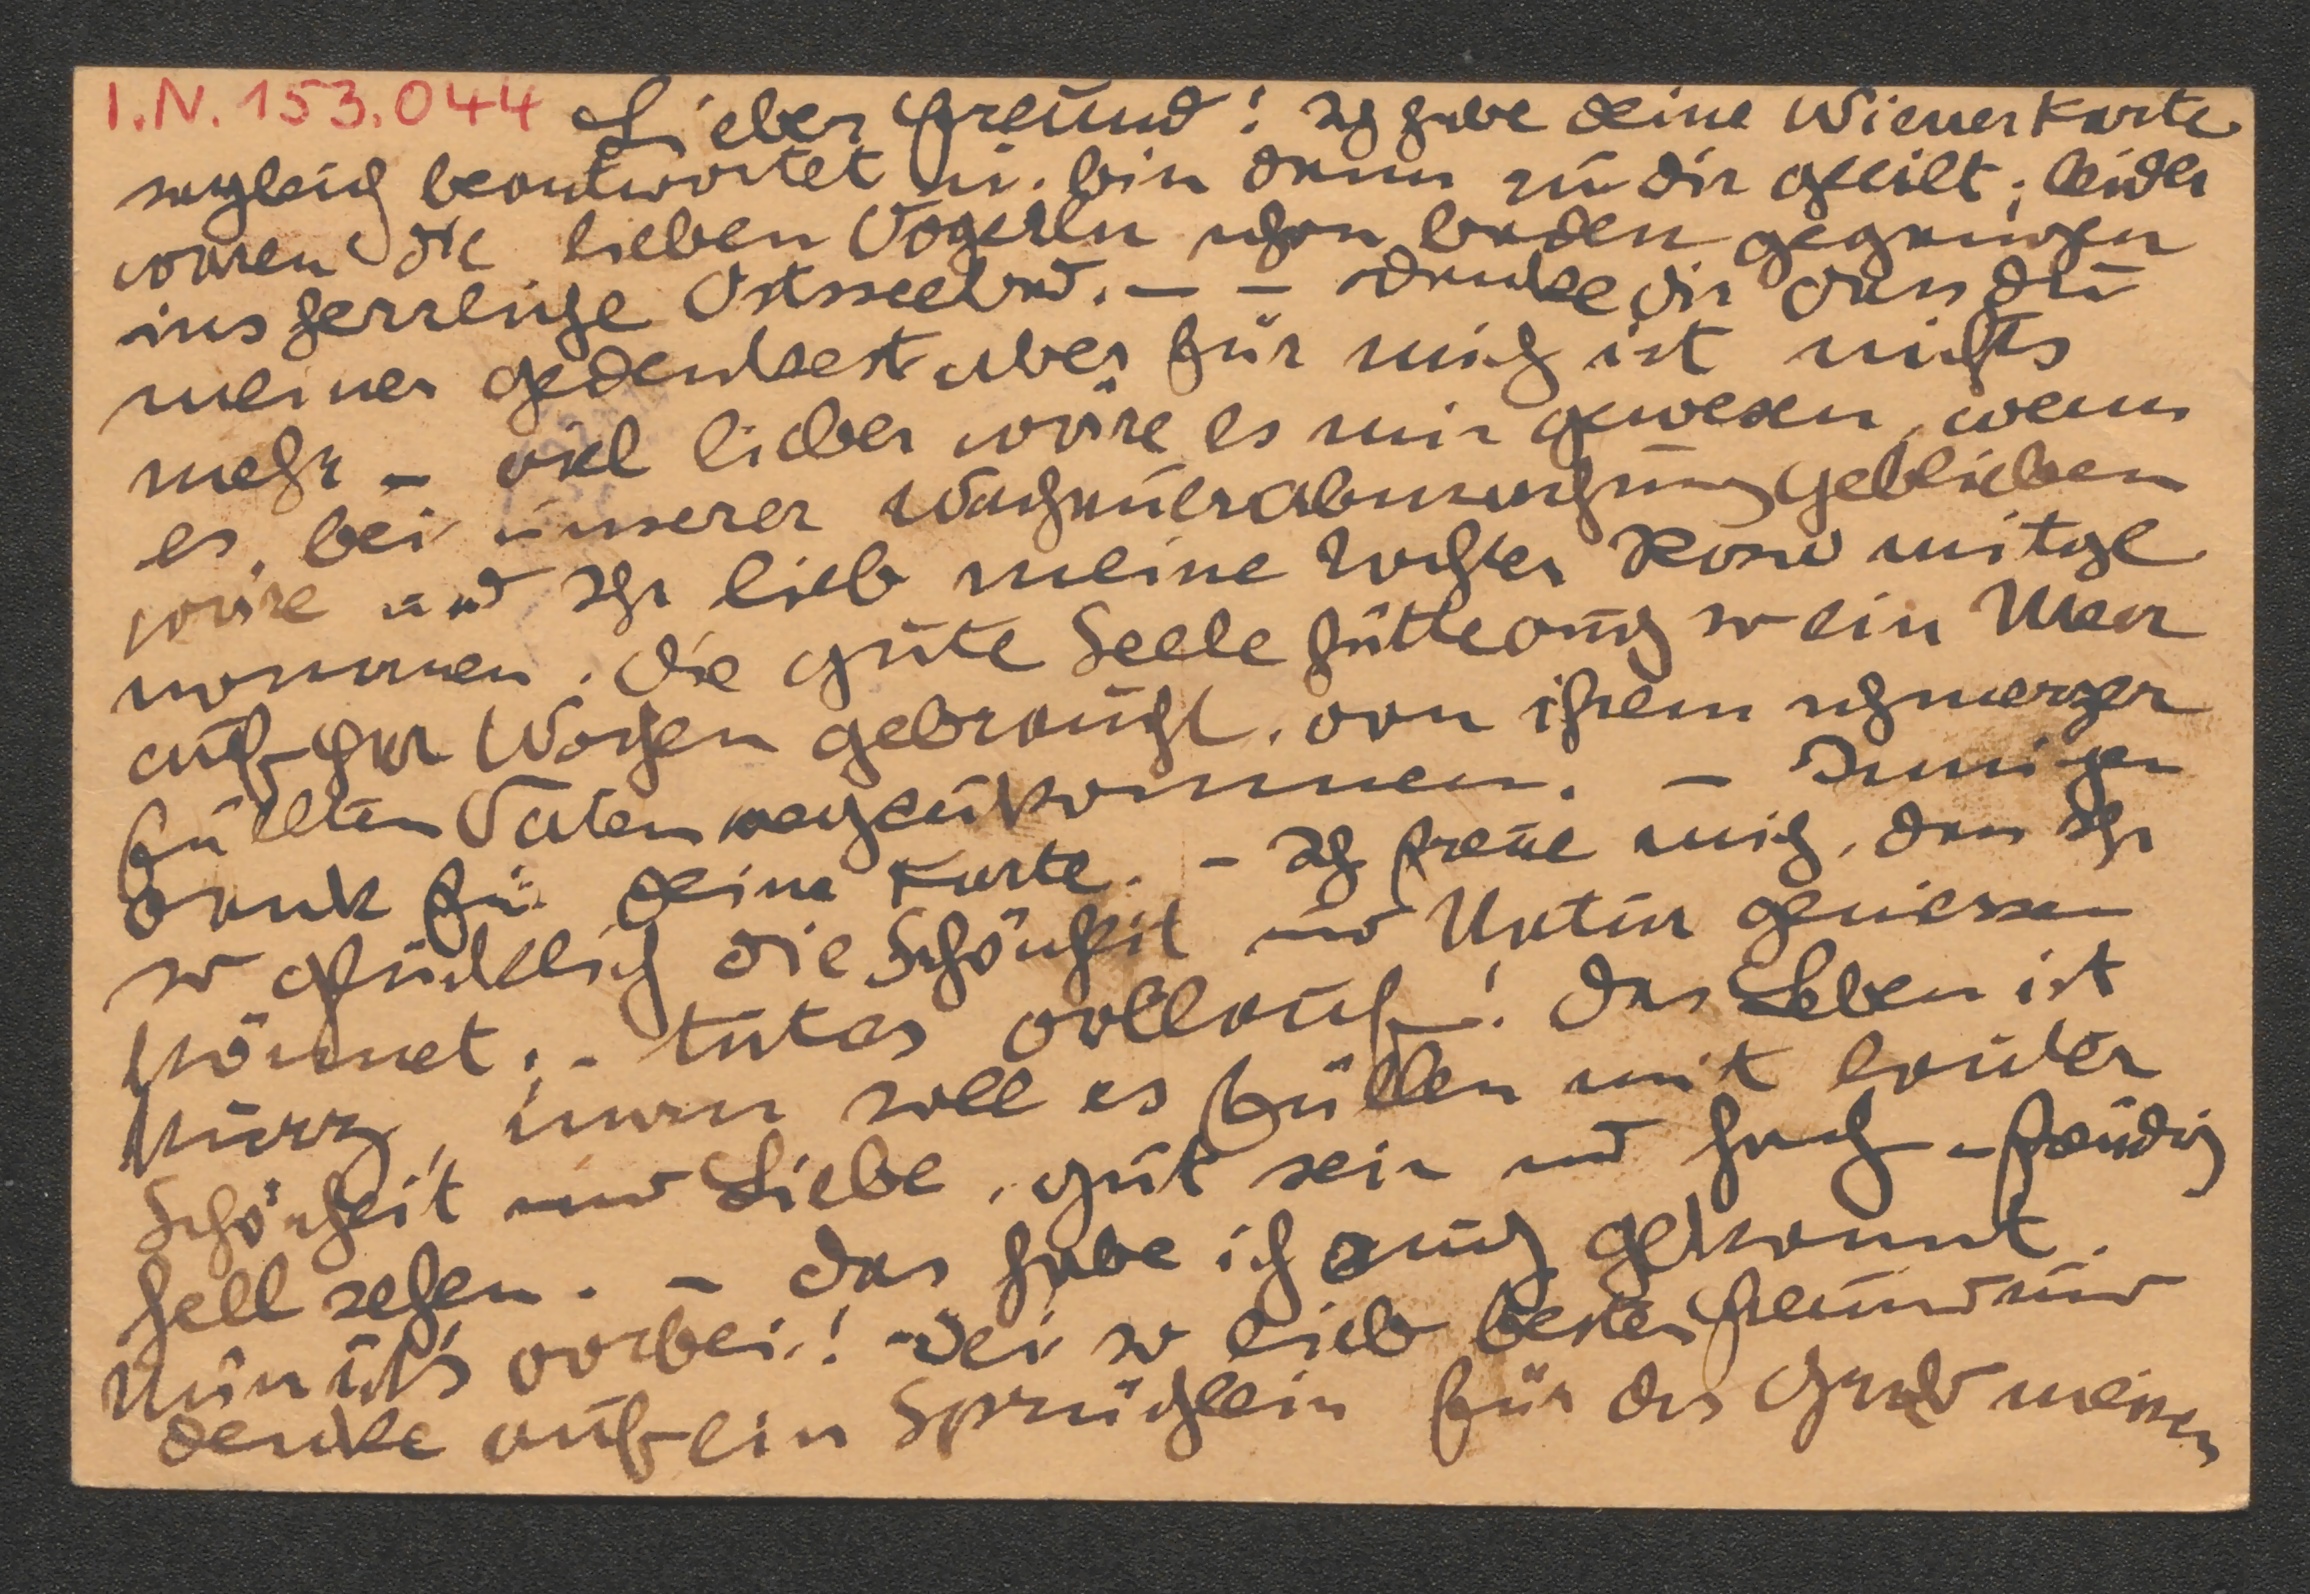 I.N. 153.044
Lieber Freund! Ich habe deine Wienerkarte
sogleich beantwortet u. bin dann zu dir geeilt; leider
waren die lieben Vögerln schon baden gegangen
ins herrliche Ostseebad. – – Danke dir dass du
meiner gedenkest aber für mich ist nichts
mehr – viel lieber wäre es mir gewesen, wenn
es bei unserer Wachauerabmachung geblieben
wäre und Ihr lieb meine Tochter Rosa mitge
nommen. Die gute Seele hätte auch so ein Meer
auf paar Wochen gebraucht, von ihrem schmerzer
füllten Vater wegzukommen. – Innigen
Dank für deine Karte. – Ich freue mich, dass Ihr
so glücklich die Schönheit und Natur geniessen
könnet; – tut es vollauf! Das Leben ist
kurz, man soll es füllen mit lauter
Schönheit und Liebe, gut sein und hoch-freudig
hell sehen. – Das habe ich auch gekonnt.
Nun ists vorbei! Sei so lieb bester Freund und
denke auf ein Sprüchlein für das Grab meiner